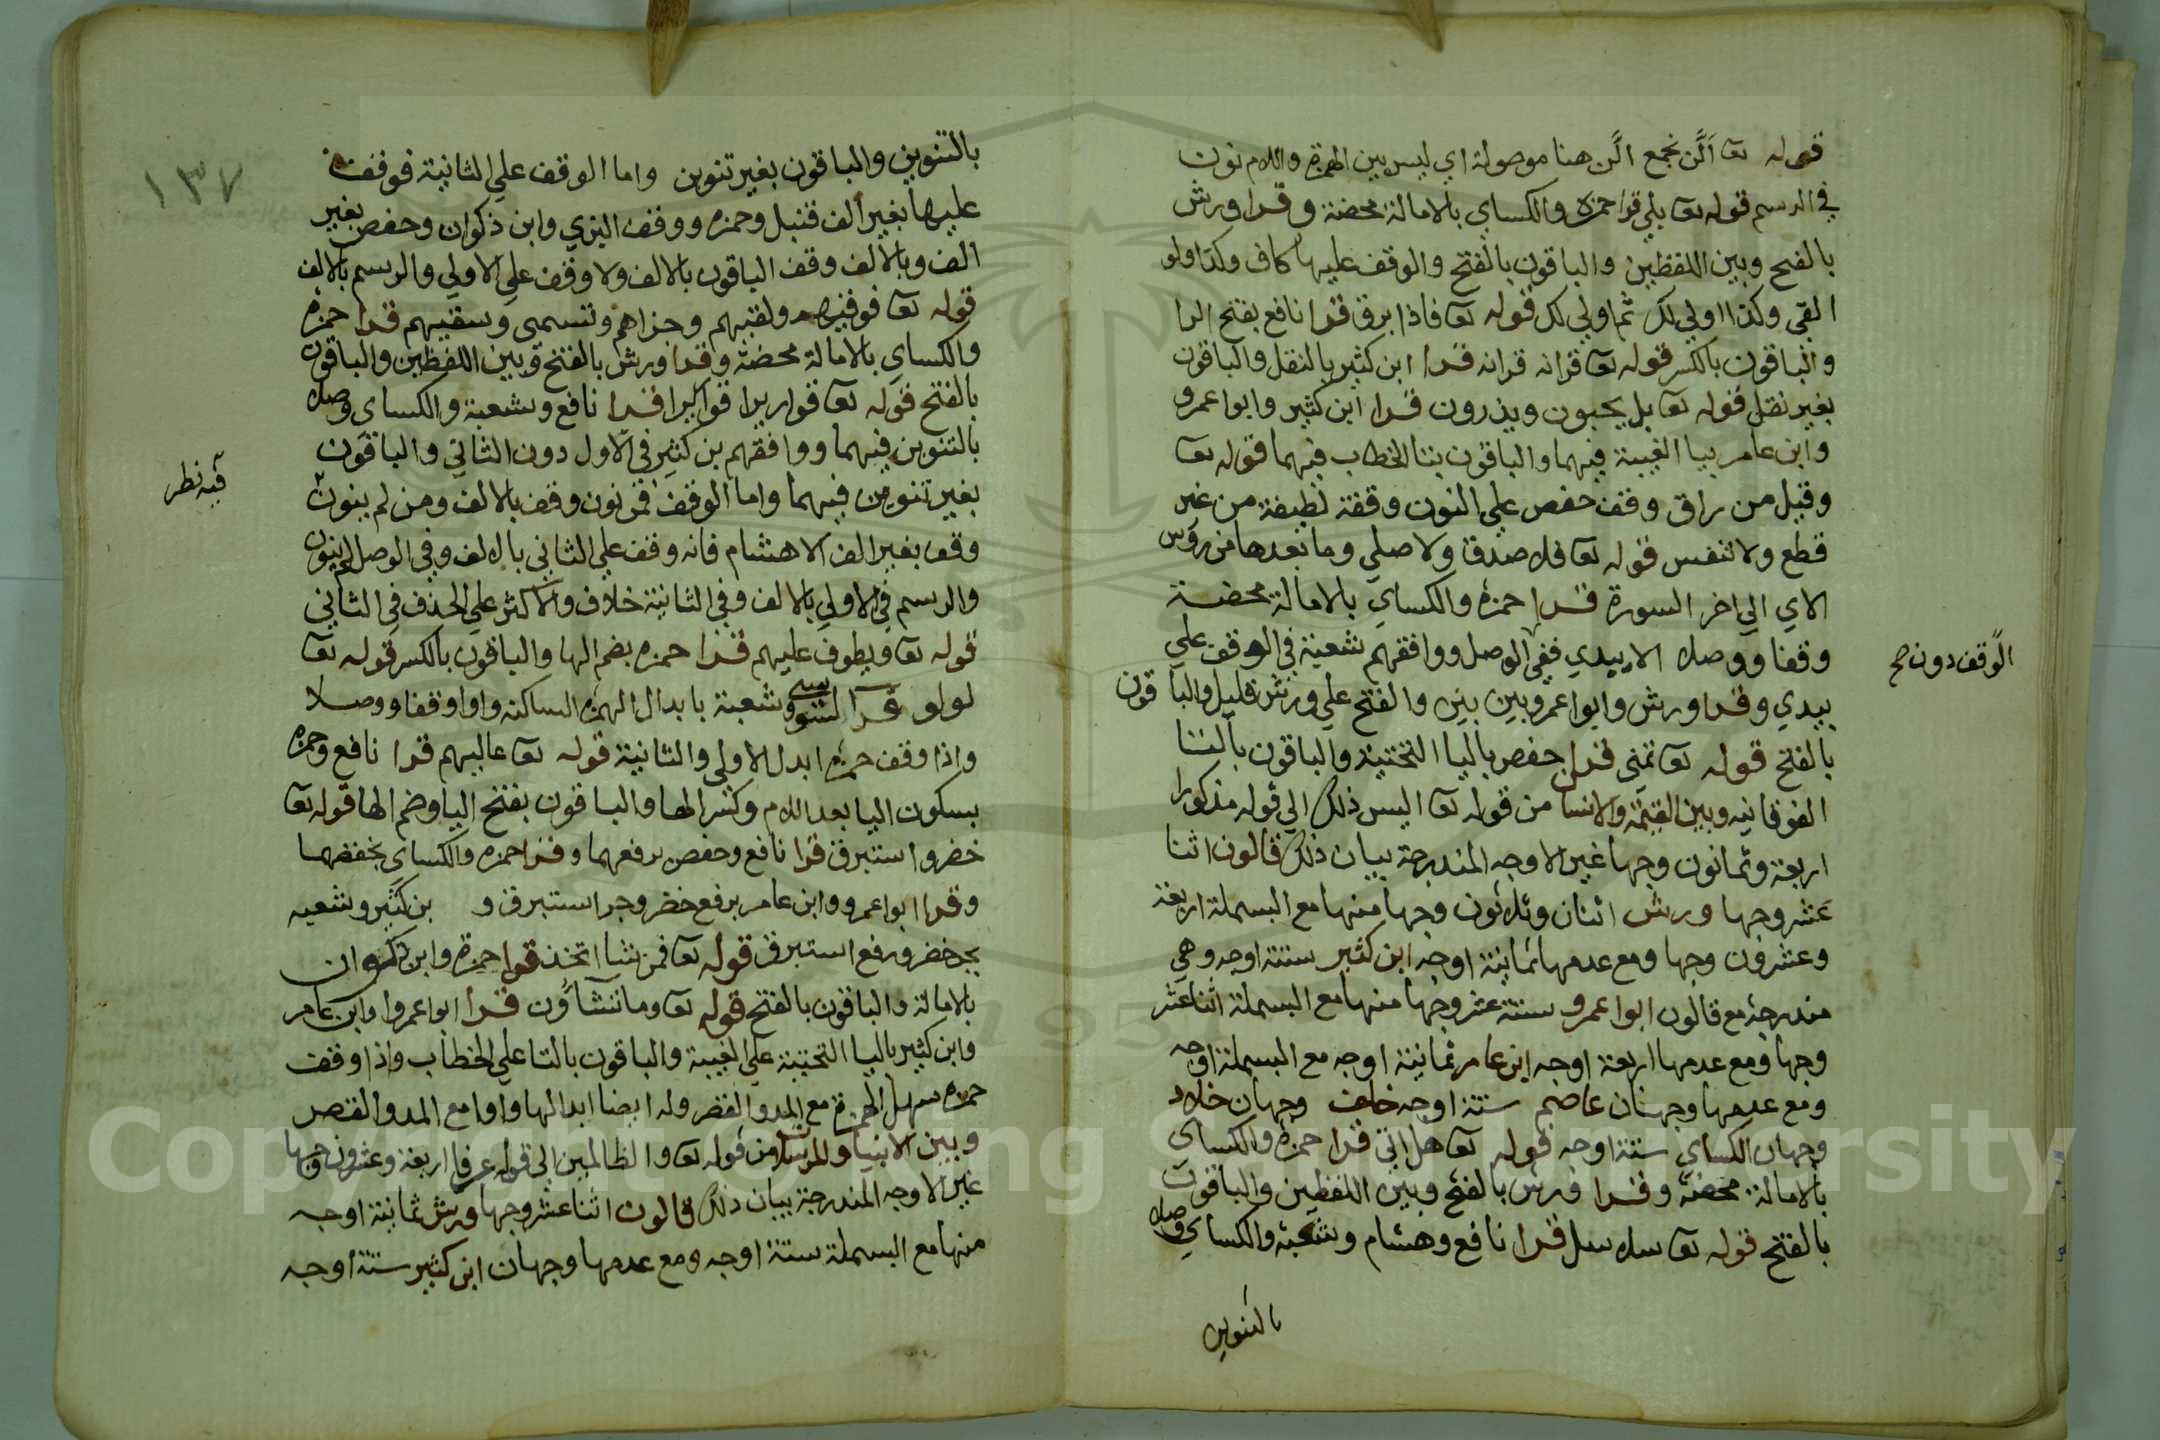 قوله تعا الَّن نجمع الَّن هنا موصولة اي ليس بين الهمزة واللام نون
في الرسم قوله تعا بلي قرا حمزة والكساي بالامالة محضة وقرا ورش
بالفتح وبين اللفظين والباقون بالفتح والوقف عليها كاف وكذا ولو
القي وكذا اولي لك ثم اولي لك قوله تعا فاذا برق قرا نافع بفتح الرا
والباقون بالكسر قوله تعا قرانه قرانه قرا ابن كثير بالنقل والباقون
بغير نقل قوله تعا بل يحبون ويذرون قرا ابن كثير وابوا عمرو
وابن عامر بيا الغيبة فيهما والباقون بتا الخطاب فيهما قوله تعا
وقيل من راق وقف حفص علي النون وقفة لطيفة من غير
قطع ولا تنفس قوله تعا فلا صدق ولا صلي وما بعدها من روس
الاي الي اخر السورة قرا حمزة والكساي بالامالة محضة
وقفا ووصلا الا بيدي ففي الوصل ووافقهم شعبة في الوقف علي
الوقف دون صح
بيدي وقرا ورش وابوا عمرو بين بين والفتح علي ورش قليل والباقون
بالفتح قوله تعا تمني قرا حفص باليا التحتية والباقون بالتا
الفوقانيه وبين القيمة والانسان من قوله تعا اليس ذلك الي قوله مذكورا
اربعة وثمانون وجها غير الاوجه المندرجة بيان ذلك قالون اثنا
عشر وجها ورش اثنان وثلاثون وجها منها مع البسملة اربعة
وعشرون وجها ومع عدمها ثمانية اوجه ابن كثير ستة اوجه وهي
مندرجة مع قالون ابوا عمرو ستة عشر وجها منها مع البسملة اثنا عشر
وجها ومع عدمها اربعة اوجه ابن عامر ثمانية اوجه مع البسملة اوجه
ومع عدمها وجهان عاصم ستة اوجه خلف وجهان خلاد
وجهان الكساي ستة اوجه قوله تعا هل اتي قرا حمزة والكساي
بالامالة محضة وقرا ورش بالفتح وبين اللفظين والباقون
بالفتح قوله تعا سلاسل قرا نافع وهشام وشعبة والكساي وصلا
بالتنوين
١٣٧
بالتنوين والباقون بغير تنوين واما الوقف علي الثانية فوقف
عليها بغير الف قنبل وحمزه ووقف البزي وابن ذكوان وحفص بغير
الف وبالالف وقف الباقون بالالف ولا وقف علي الاولي والرسم بالالف
قوله تعا فوقيهم ولقيهم وجزاهم وتسمي وسقيهم قرا حمزه
والكساي بالامالة محضة وقرا ورش بالفتح وبين اللفظين والباقون
بالفتح قوله تعا قواريرا قواريرا قرا نافع وشعبة والكساي وصلا
بالتنوين فيهما ووافقهم بن كثير في الاول دون الثاني والباقون
فيه نظر
بغير تنوين فيهما واما الوقف فمن نون وقف بالالف ومن لم ينون
وقف بغير الف الا هشام فانه وقف علي الثاني بالالف وفي الوصل لم ينون
والرسم في الاولي بالالف وفي الثانية خلاف والاكثر علي الحذف في الثاني
قوله تعا ويطوف عليهم قرا حمزه بضم الها والباقون بالكسر قوله تعا
لولو قرا السوسي وشعبة بابدال الهمزه الساكنه واوا وقفا ووصلا
واذا وقف حمزه ابدل الاولي والثانية قوله تعا عاليهم قرا نافع وحمزه
بسكون اليا بعد اللام وكسر الها والباقون بفتح اليا وضم الها قوله تعا
خضر واستبرق قرا نافع وحفص برفعهما وقرا حمزه والكساي بخفضهما
وقرا ابوا عمرو وابن عامر برفع خضر وجر استبرق و بن كثير وشعبه
بجر خضر ورفع استبرق قوله تعا فمن شا اتخذ قرا حمزة وابن ذكوان
بالامالة والباقون بالفتح قوله تعا وما تشآؤن قرا ابوا عمروا وابن عامر
وابن كثير باليا التحتية علي الغيبة والباقون بالتا علي الخطاب واذا وقف
حمزه سهل الهمزة مع المد والقصر وله ايضا ابدالها واوا مع المد والقصر
وبين الانسان والمرسلات من قوله تعا والظالمين الي قوله عرفا اربعة وعشرون وجها
غير الاوجه المندرجة بيان ذلك قالون اثنا عشر وجها ورش ثمانية اوجه
منها مع البسملة ستة اوجه ومع عدمها وجهان ابن كثير ستة اوجه
Copyright © King Saud University
1957